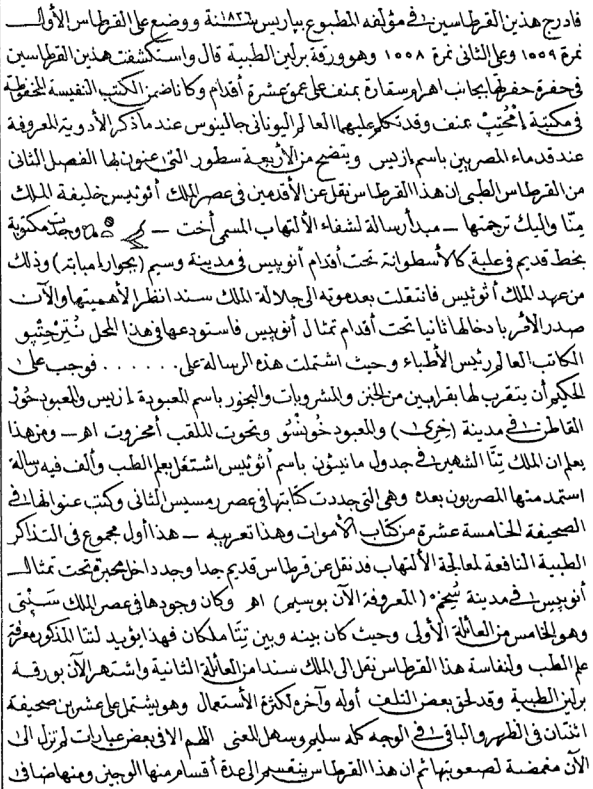 فادرج هذين القرطاسين في مؤلفه المطبوع بباريس سنة ١٨٣٦ ووضع على القرطاس الأول
نمرة ١٥٥٩ وعلى الثاني نمرة ١٥٥٨ وهو ورقة برلين الطبية قال واستكشفت هذين القرطاسين
في حفرة حفرتها بجانب اهرام سقارة بمنف على عمق عشرة أقدام وكانا ضمن الكتب النفيسة المحفوظة
في مكتبة إمحتب بمنف وقد تكلم عليهما العالم اليوناني جالينوس عند ما ذكر الأدوية المعروفة
عند قدماء المصريين باسم ازيس ويتضح من الأربعة سطور التي عنون بها الفصل الثاني
من القرطاس الطبى ان هذا القرطاس نقل عن الأقدمين في عصر الملك أثوثيس خليفة الملك
مِنّا واليك ترجمتها ــ مبدأ رسالة لشفاء الألتهاب المسمى أخت ــ وجدت مكتوبة
بخط قديم في علبة كالأسطوانة تحت أقدام أنوبيس في مدينة وسيم (بجوار امبابة) وذلك
من عهد الملك أثوثيس فانتقلت بعد موته الى جلالة الملك سندا نظرا لأهميتها والآن
صدر الأمر بادخالها ثانيا تحت أقدام تمثال أنوبيس فاستودعها في هذا المحل نُتِرحِتْپو
الكاتب العالم رئيس الأطباء وحيث اشتملت هذه الرسالة على . . . . . . فوجب على
الحكيم أن يتقرب لها بقرابين من الخبز والمشروبات والبخور باسم المعبودة ازيس والمعبود حور
القاطن في مدينة (خرى) والمعبود خونسو وتحوت الملقب أمخروت اهـ ــ ومن هذا
يعلم ان الملك تِتّا الشهير في جدول مانيثون باسم أثوثيس اشتغل بعلم الطب وألف فيه رسالة
استمد منها المصريون بعده وهي التي جددت كتابتها في عصر رمسيس الثاني وكتب عنوانها في
الصحيفة الخامسة عشرة من كتاب الأموات وهذا تعريبه ــ هذا أول مجموع في التذاكر
الطبية النافعة لمعالجة الألتهاب قد نقل عن قرطاس قديم جدا وجد داخل محبرة تحت تمثال
أنوبيس في مدينة سُخِم (المعروفة الآن بوسيم) اهـ وكان وجودها في عصر الملك سَپْتى
وهو الخامس من العائلة الأولى وحيث كان بينه وبين تِتّا ملكان فهذا يؤيد لتتا المذكور معرفة
علم الطب ولنفاسة هذا القرطاس نقل الى الملك سندا من العائلة الثانية واشتهر الآن بورقة
برلين الطبية وقد لحق بعض التلف أوله وآخره لكثرة الأستعمال وهو يشتمل على عشرين صحيفة
اثنتان في الظهر والباقي في الوجه كله سليم وسهل المعنى اللهم الا في بعض عبارات لم تزل الى
الآن مغمضة لصعوبتها ثم ان هذا القرطاس ينقسم الى عدة أقسام منها الوجيز ومنها ضافى